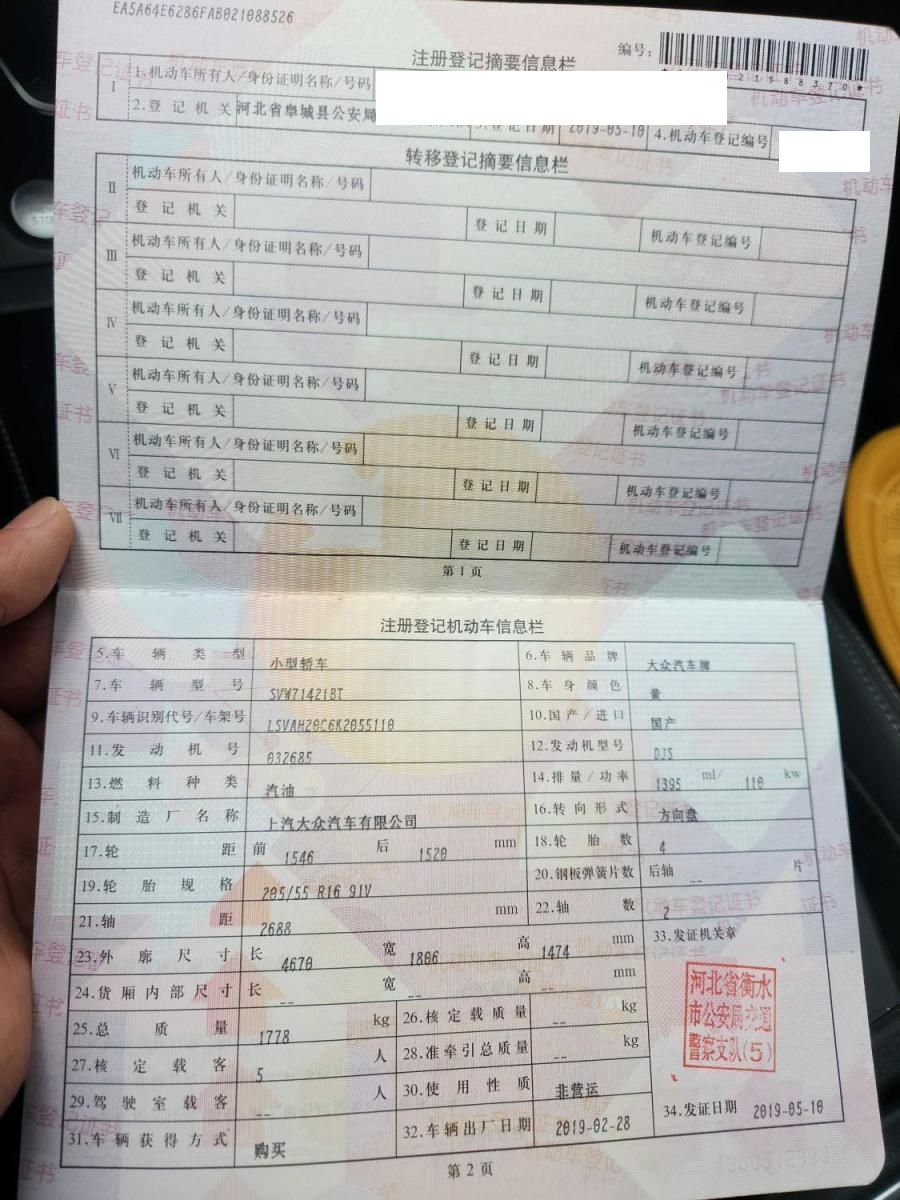 EA5A64E6286FAB021088526
注册登记摘要信息栏 编号:
Ⅰ 1.机动车所有人/身份证明名称/号码
2.登记机关 河北省阜城县公安局 3.登记日期 2019-05-10 4.机动车登记编号
转移登记摘要信息栏
Ⅱ 机动车所有人/身份证明名称/号码
登记机关 登记日期 机动车登记编号
Ⅲ 机动车所有人/身份证明名称/号码
登记机关 登记日期 机动车登记编号
Ⅳ 机动车所有人/身份证明名称/号码
登记机关 登记日期 机动车登记编号
Ⅴ 机动车所有人/身份证明名称/号码
登记机关 登记日期 机动车登记编号
Ⅵ 机动车所有人/身份证明名称/号码
登记机关 登记日期 机动车登记编号
Ⅶ 机动车所有人/身份证明名称/号码
登记机关 登记日期 机动车登记编号
第1页
注册登记机动车信息栏
5.车辆类型 小型轿车 6.车辆品牌 大众汽车牌
7.车辆型号 SVW71421BT 8.车身颜色 黄
9.车辆识别代号/车架号 LSVAH20C6K2055110 10.国产/进口 国产
11.发动机号 032685 12.发动机型号 DJS
13.燃料种类 汽油 14.排量/功率 1395 ml/ 110 kw
15.制造厂名称 上汽大众汽车有限公司 16.转向形式 方向盘
17.轮距 前 1546 后 1520 mm 18.轮胎数 4
19.轮胎规格 205/55 R16 91V 20.钢板弹簧片数 后轴 -- 片
21.轴距 2688 mm 22.轴数 2
23.外廓尺寸 长 4670 宽 1806 高 1474 mm 33.发证机关章
24.货厢内部尺寸 长 -- 宽 -- 高 -- mm
河北省衡水
市公安局交通
警察支队(5)
25.总质量 1778 kg 26.核定载质量 -- kg
27.核定载客 5 人 28.准牵引总质量 -- kg
29.驾驶室载客 -- 人 30.使用性质 非营运
31.车辆获得方式 购买 32.车辆出厂日期 2019-02-28 34.发证日期 2019-05-10
第2页